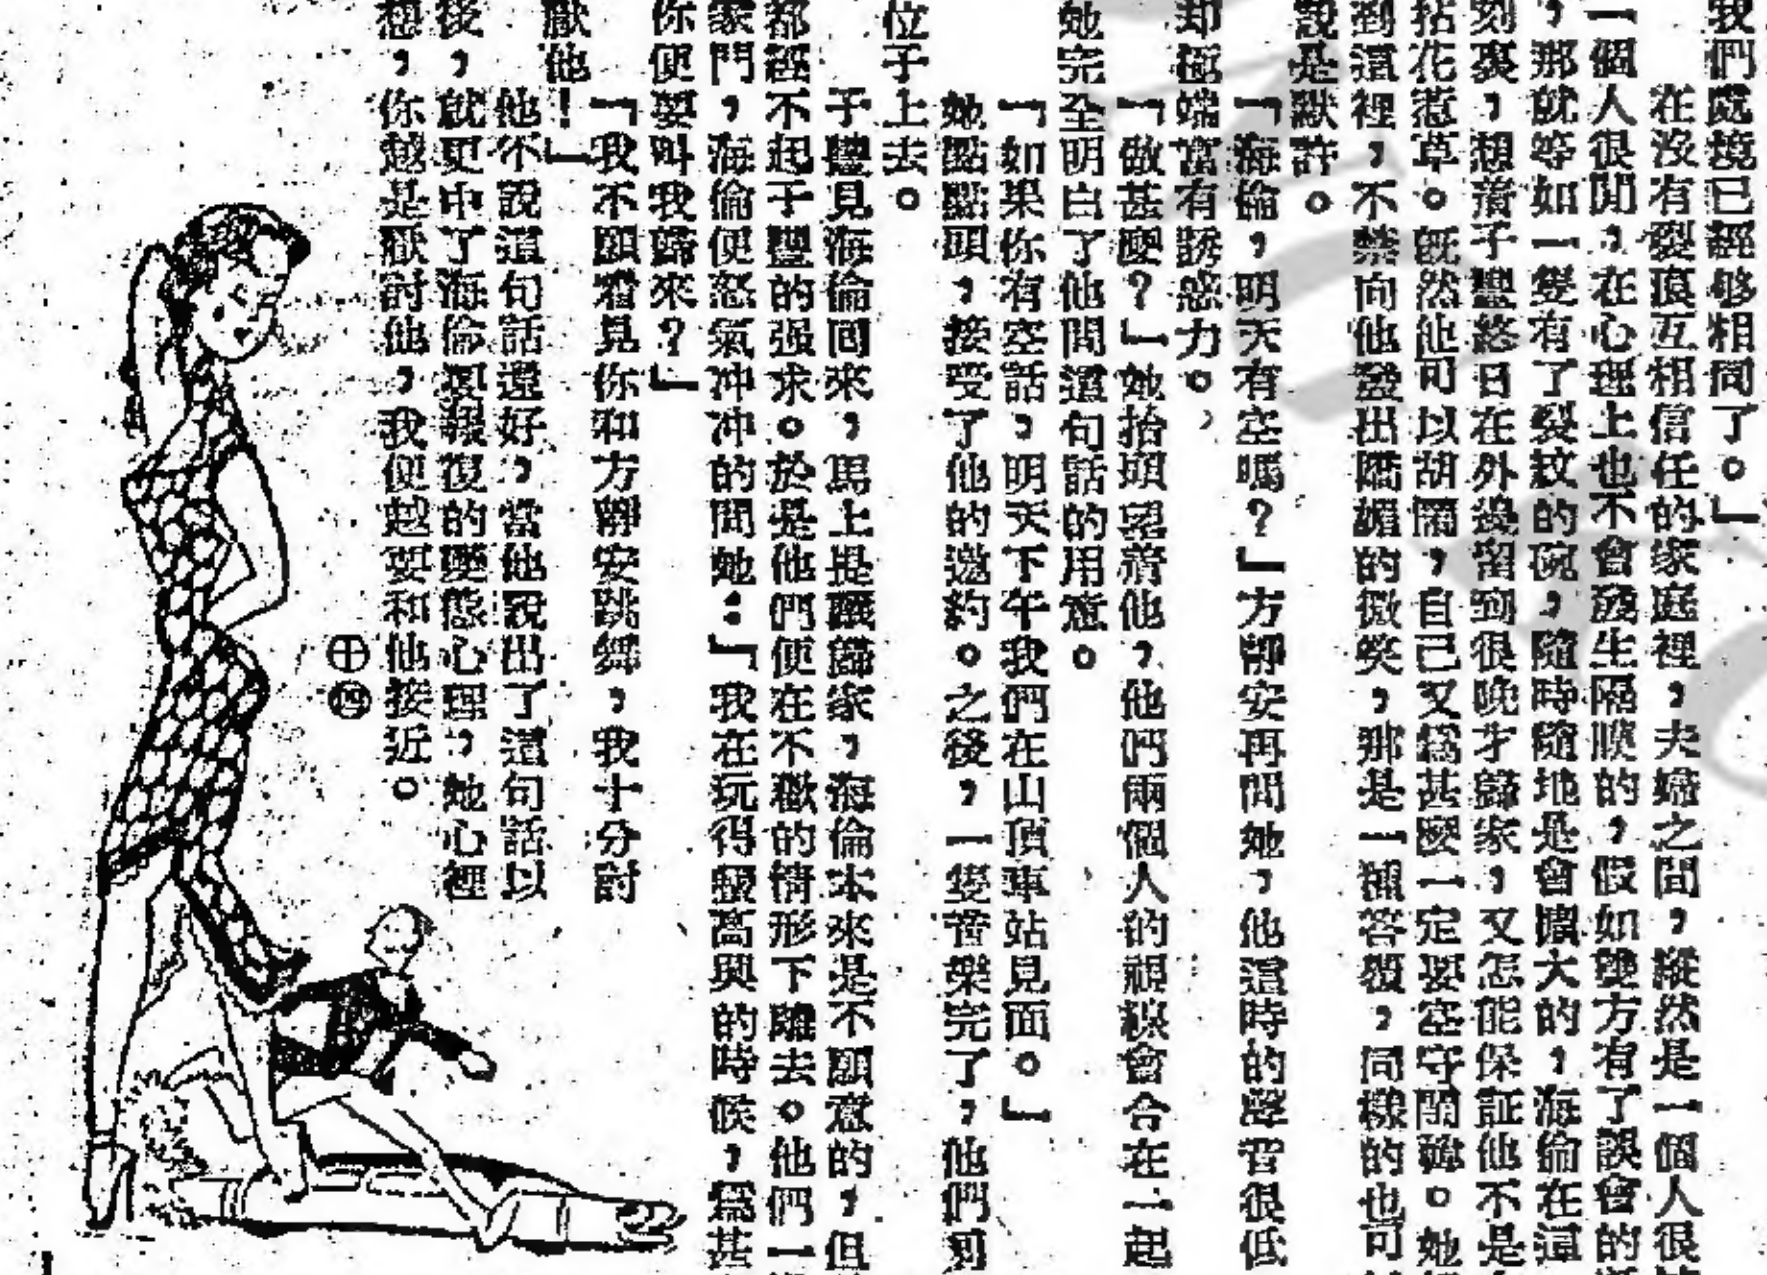 我們處境已經够相同了。」
在沒有裂痕互相信任的家庭裡，夫婦之間，縱然是一個人很
一個人很閒，在心理上也不會發生隔膜的，假如雙方有了誤會的
，那就等如一隻有了裂紋的碗，隨時隨地是會擴大的，海倫在這
刻裏，想着子豐終日在外邊留到很晚才歸家，又怎能保証他不是
拈花惹草。旣然他可以胡鬧，自己又爲甚麽一定要空守閨幃。她
到這裡，不禁向他發出嬌媚的微笑，那是一種答覆，同樣的也可
說是默許。
「海倫，明天有空嗎？」方靜安再問她，他這時的聲音很低
却極端富有誘惑力。
「做甚麽？」她抬頭望着他，他們兩個人的視線會合在一起
她完全明白了他問這句話的用意。
「如果你有空話，明天下午我們在山頂車站見面。」
她點點頭，接受了他的邀約。之後，一隻音樂完了，他們剛
位子上去。
子豐見海倫囘來，馬上是要歸家，海倫本來是不願意的，但
都經不起子豐的强求。於是他們便在不歡的情形下離去。他們一
家門，海倫便怒氣冲冲的問她：「我在玩得極高興的時候，爲甚
你便要叫我歸來？」
「我不願看見你和方靜安跳舞，我十分討
厭他！」
他不說這句話還好，當他說出了這句話以
後，就更中了海倫要報復的變態心理，她心裡
想，你越是厭討他，我便越要和他接近。
十四